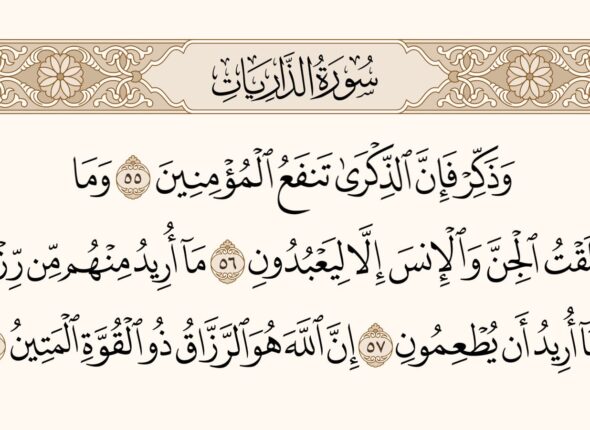 سُورَةُ الذَّارِيَاتِ
وَذَكِّرۡ فَإِنَّ ٱلذِّكۡرَىٰ تَنفَعُ ٱلۡمُؤۡمِنِينَ ٥٥ وَمَا
ٱلۡجِنَّ وَٱلۡإِنسَ إِلَّا لِيَعۡبُدُونِ ٥٦ مَآ أُرِيدُ مِنۡهُم مِّن
أُرِيدُ أَن يُطۡعِمُونِ ٥٧ إِنَّ ٱللَّهَ هُوَ ٱلرَّزَّاقُ ذُو ٱلۡقُوَّةِ ٱلۡمَتِينُ